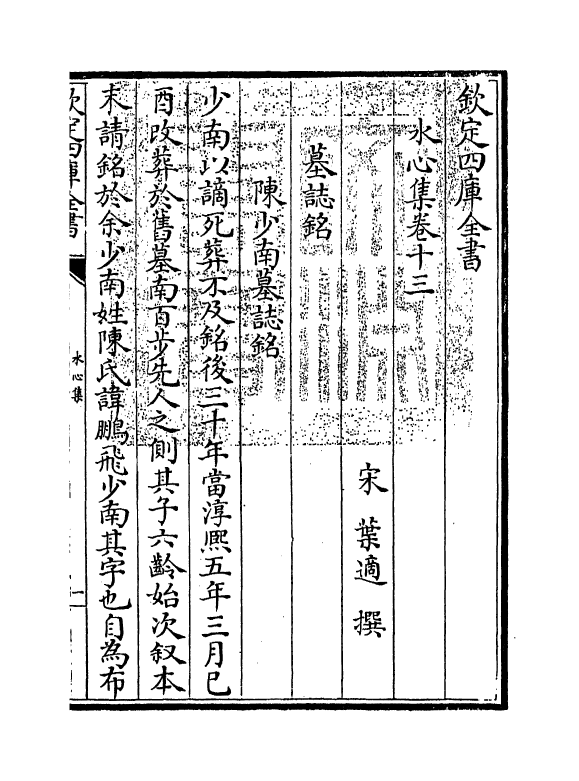 欽定四庫全書
水心集卷十三
宋 葉適 撰
墓誌銘
陳少南墓誌銘
少南以謫死葬不及銘後三十年當淳熙五年三月已
酉改葬於舊墓南百步先人之側其子六齡始次叙本
末請銘於余少南姓陳氏諱鵬飛少南其字也自為布
欽定四庫全書
水心集
一